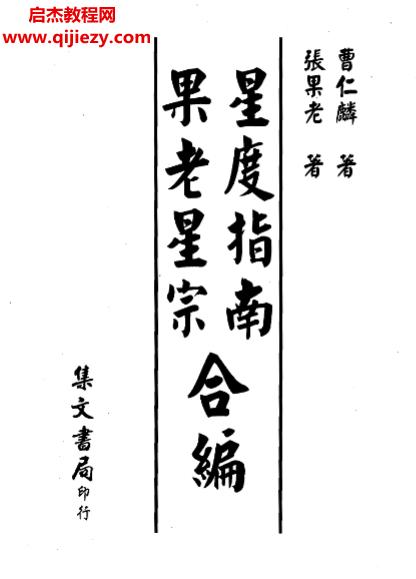 启杰教程网
www.qijiezy.com
曹仁麟 著
張果老 著
星度指南
果老星宗
合編
集文書局印行